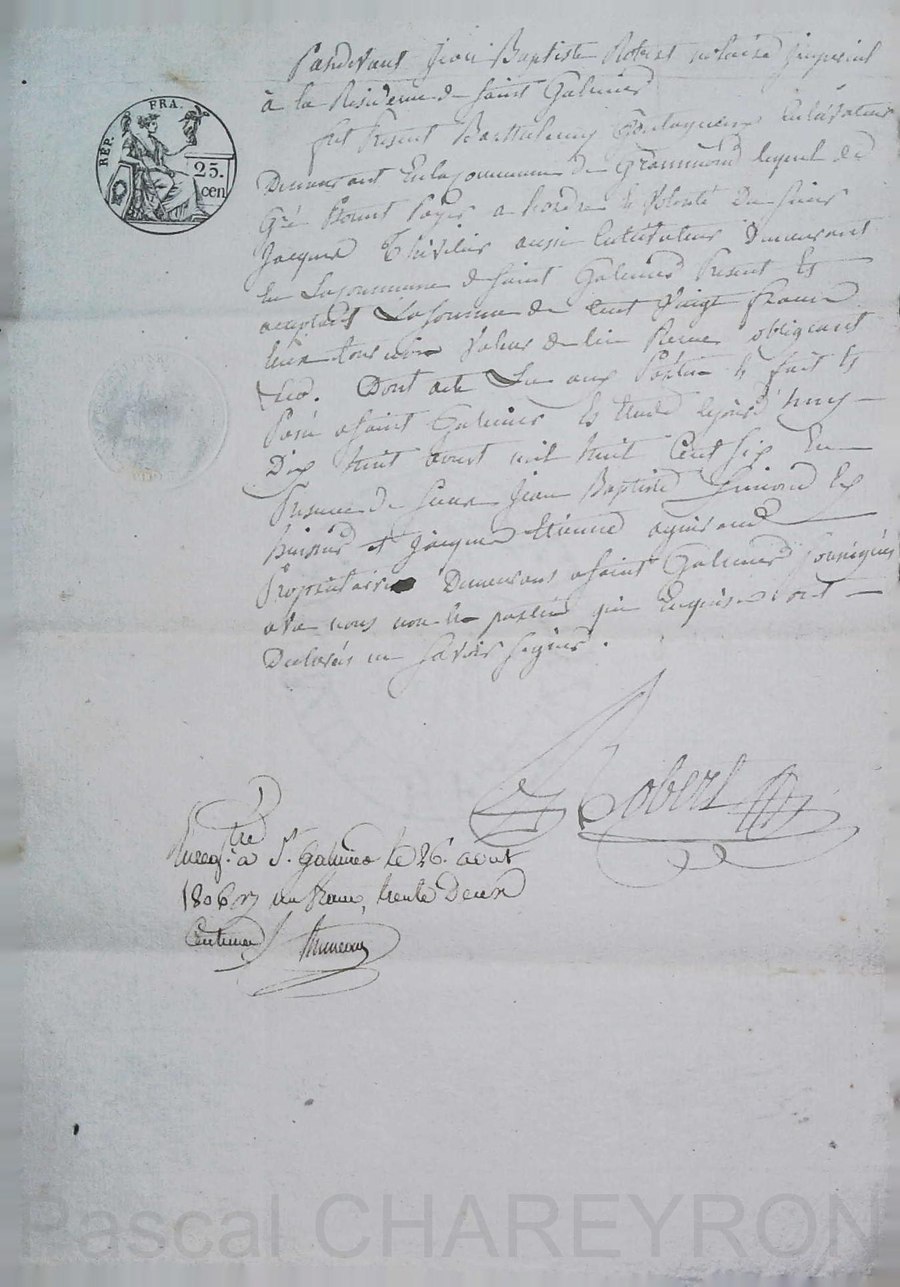 RÉP. FRA.
25.
cen
Pardevant Jean Baptiste Robert notaire imperial
à la Residence de Saint Galmier
fut Present Barthelemy cultivateur
Demeurant En la Commune de Grammond lequel de
Gré Promet Payer a l'ordre Et Volonté Du Sieur
Jacques Thivilier aussi Cultivateur Demeurant
En La Commune de Saint Galmier Present Et
acceptant La Somme de Cent Vingt francs
Valeur de lui Reçue obligeant
Dont acte Lu aux Parties fait Et
Passé a Saint Galmier Etude Cejourd'huy
Dix huit aoust mil huit Cent Six En
Presence de Sieurs Jean Baptiste Simond
huissier & Jacques Etienne
Proprietaire Demeurans a Saint Galmier Soussignés
avec nous non les parties qui Enquises ont
Declarés ne Savoir Signer.
Robert
Enregtré à St. Galmier le 26. aout
1806 un franc, trente Deux
Centimes
Pascal CHAREYRON